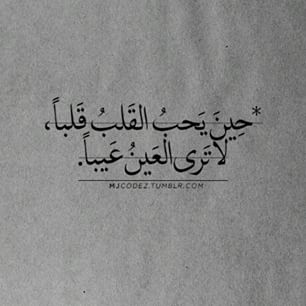 *حِينَ يَحبُ القَلبُ قَلباً،
لا تَرى العَينُ عَيباً.
MJCODEZ.TUMBLR.COM